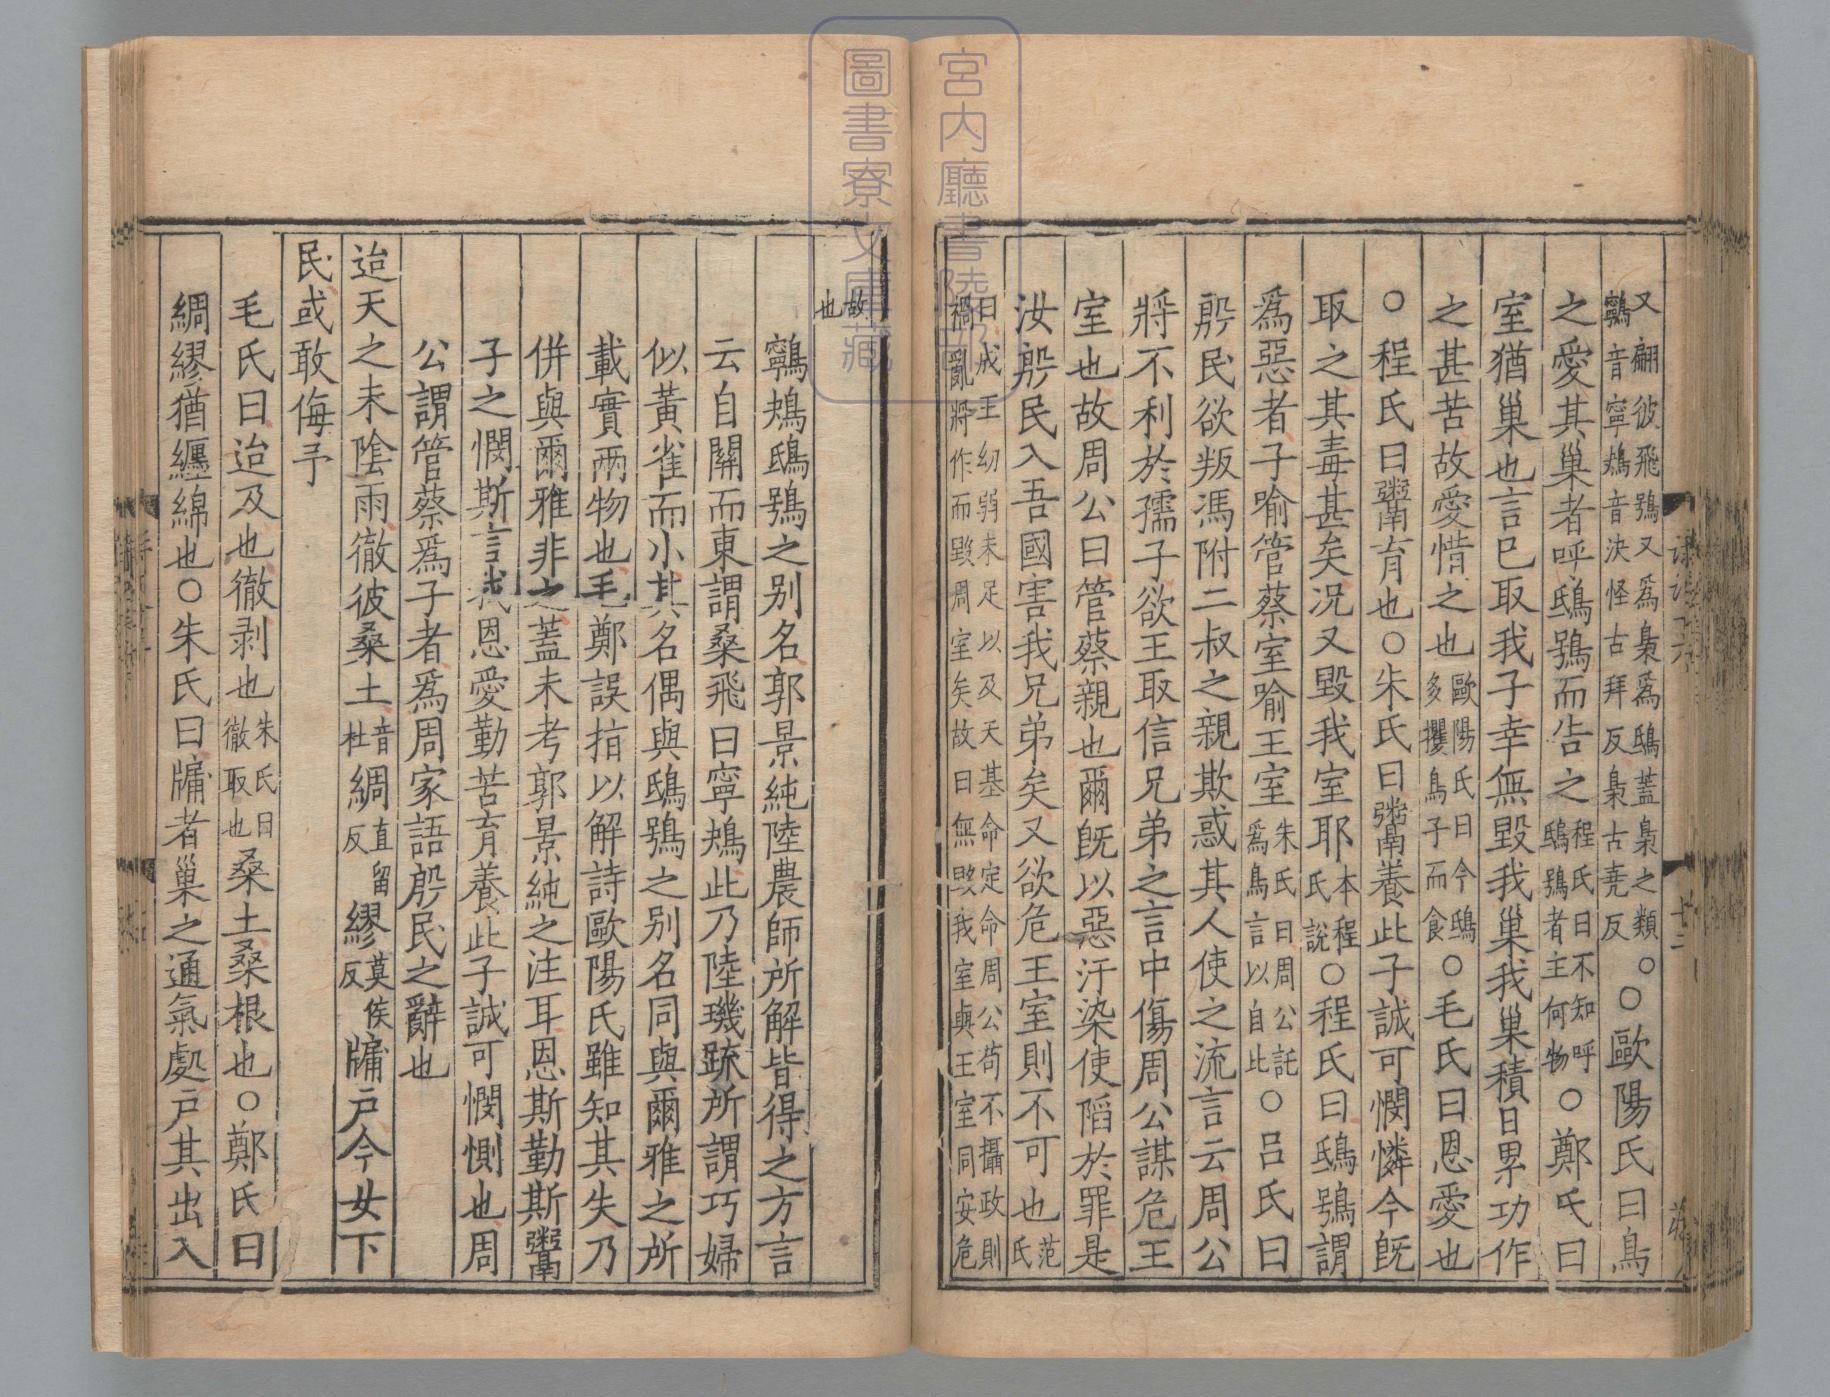 又翩彼飛鴞又爲梟爲鴟蓋梟之類○
鸋音寧鴂音決怪古拜反梟古堯反
○歐陽氏曰鳥
之愛其巢者呼鴟鴞而告之
程氏曰不知呼
鴟鴞者主何物
○鄭氏曰
室猶巢也言已取我子幸無毀我巢我巢積日累功作
之甚苦故愛惜之也
歐陽氏曰今鴟
多攫鳥子而食
○毛氏曰恩愛也
○程氏曰鬻育也○朱氏曰鬻養此子誠可憫憐今旣
取之其毒甚矣况又毀我室耶
本程
氏說
○程氏曰鴟鴞謂
爲惡者子喻管蔡室喻王室
朱氏曰周公託
爲鳥言以自比
○呂氏曰
殷民欲叛馮附二叔之親欺惑其人使之流言云周公
將不利於孺子欲王取信兄弟之言中傷周公謀危王
室也故周公曰管蔡親也爾旣以惡汙染使䧟於罪是
汝殷民入吾國害我兄弟矣又欲危王室則不可也
范
氏
曰成王幼弱未足以及天基命定命周公苟不攝政則
禍亂將作而毀周室矣故曰無毀我室與王室同安危
故
也
鸋鴂鴟鴞之别名郭景純陸農師所解皆得之方言
云自關而東謂桑飛曰寧鴂此乃陸璣䟽所謂巧婦
似黃雀而小其名偶與鴟鴞之别名同與爾雅之所
載實兩物也毛鄭誤指以解詩歐陽氏雖知其失乃
併與爾雅非之蓋未考郭景純之注耳恩斯勤斯鬻
子之憫斯言我恩愛勤苦育養此子誠可憫惻也周
公謂管蔡爲子者爲周家語殷民之辭也
迨天之未陰雨徹彼桑土
音
杜
綢
直留
反
繆
莫侯
反
牖戶今女下
民或敢侮予
毛氏曰迨及也徹剥也
朱氏曰
徹取也
桑土桑根也○鄭氏曰
綢繆猶纏綿也○朱氏曰牖者巢之通氣處戶其出入
宮内廳書陵部
圖書寮文庫藏